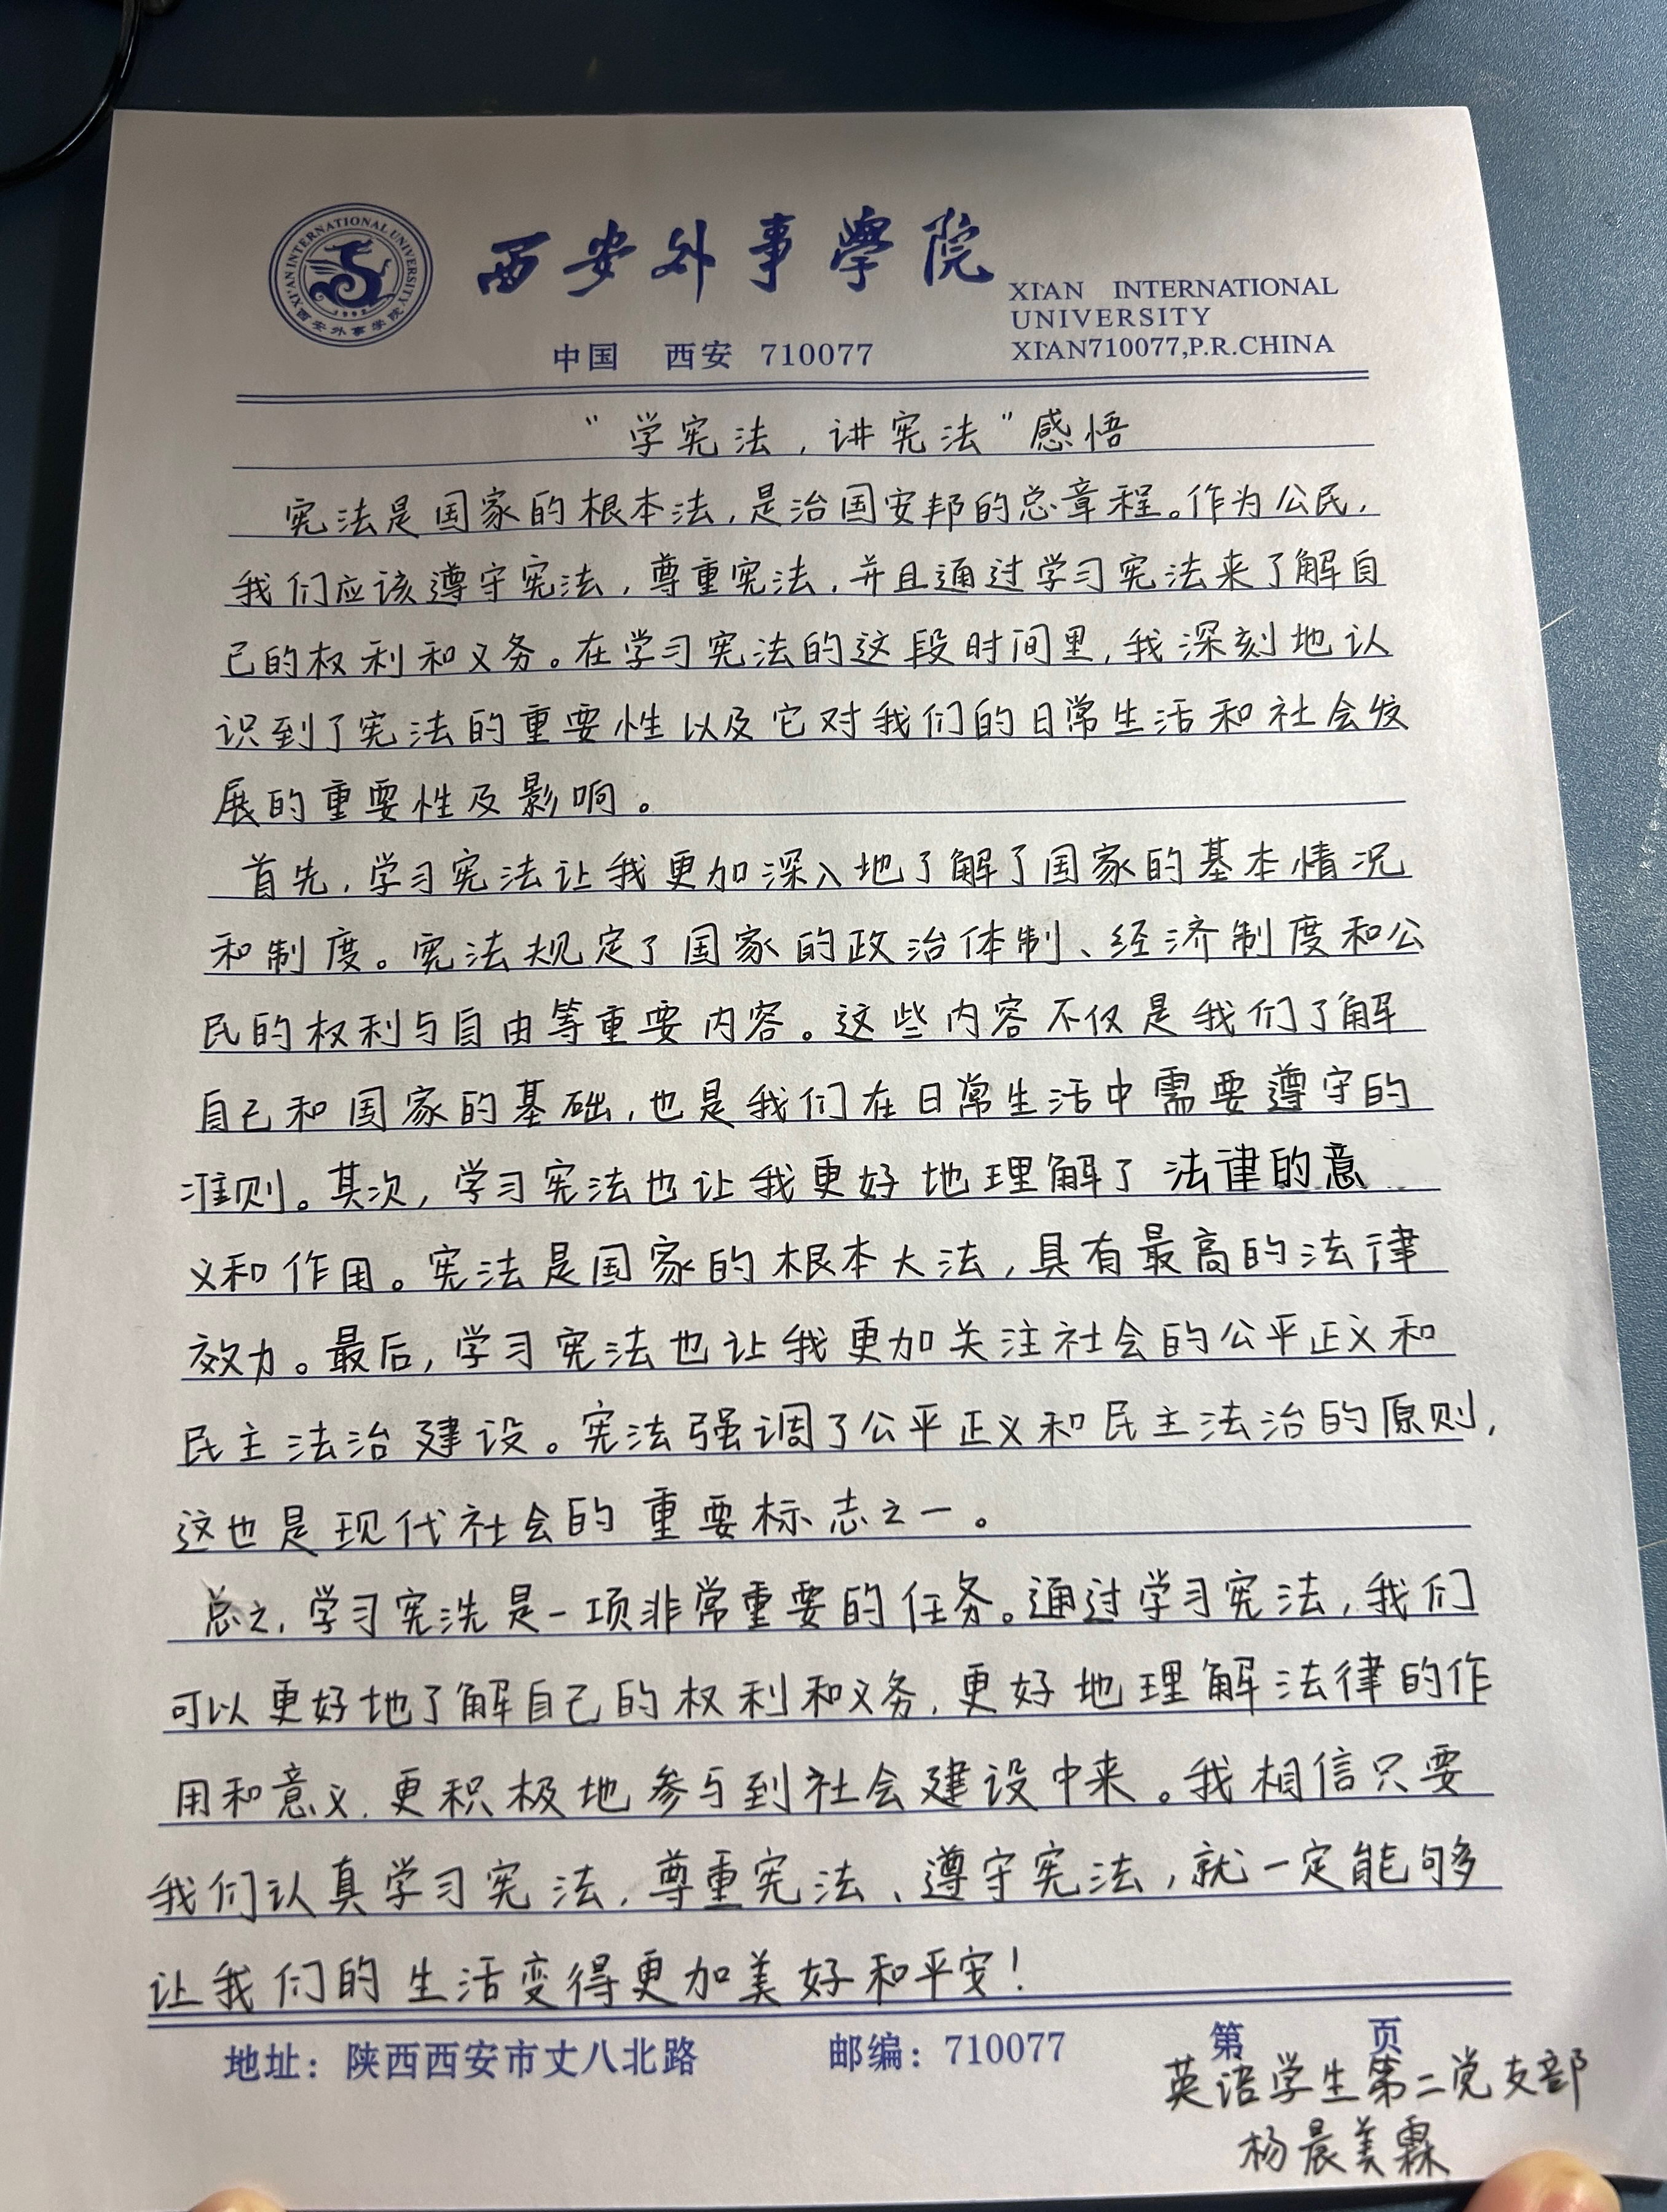 XI'AN INTERNATIONAL UNIVERSITY
1992
西安外事学院
西安外事學院
XI'AN INTERNATIONAL
UNIVERSITY
中国 西安 710077
XI'AN710077,P.R.CHINA
“学宪法，讲宪法”感悟
宪法是国家的根本法，是治国安邦的总章程。作为公民，
我们应该遵守宪法，尊重宪法，并且通过学习宪法来了解自
己的权利和义务。在学习宪法的这段时间里，我深刻地认
识到了宪法的重要性以及它对我们的日常生活和社会发
展的重要性及影响。
首先，学习宪法让我更加深入地了解了国家的基本情况
和制度。宪法规定了国家的政治体制、经济制度和公
民的权利与自由等重要内容。这些内容不仅是我们了解
自己和国家的基础，也是我们在日常生活中需要遵守的
准则。其次，学习宪法也让我更好地理解了法律的意
义和作用。宪法是国家的根本大法，具有最高的法律
效力。最后，学习宪法也让我更加关注社会的公平正义和
民主法治建设。宪法强调了公平正义和民主法治的原则，
这也是现代社会的重要标志之一。
总之，学习宪洗是一项非常重要的任务。通过学习宪法，我们
可以更好地了解自己的权利和义务，更好地理解法律的作
用和意义，更积极地参与到社会建设中来。我相信只要
我们认真学习宪法，尊重宪法、遵守宪法，就一定能够
让我们的生活变得更加美好和平安！
地址：陕西西安市丈八北路 邮编：710077 第 页
英语学生第二党支部
杨晨美霖